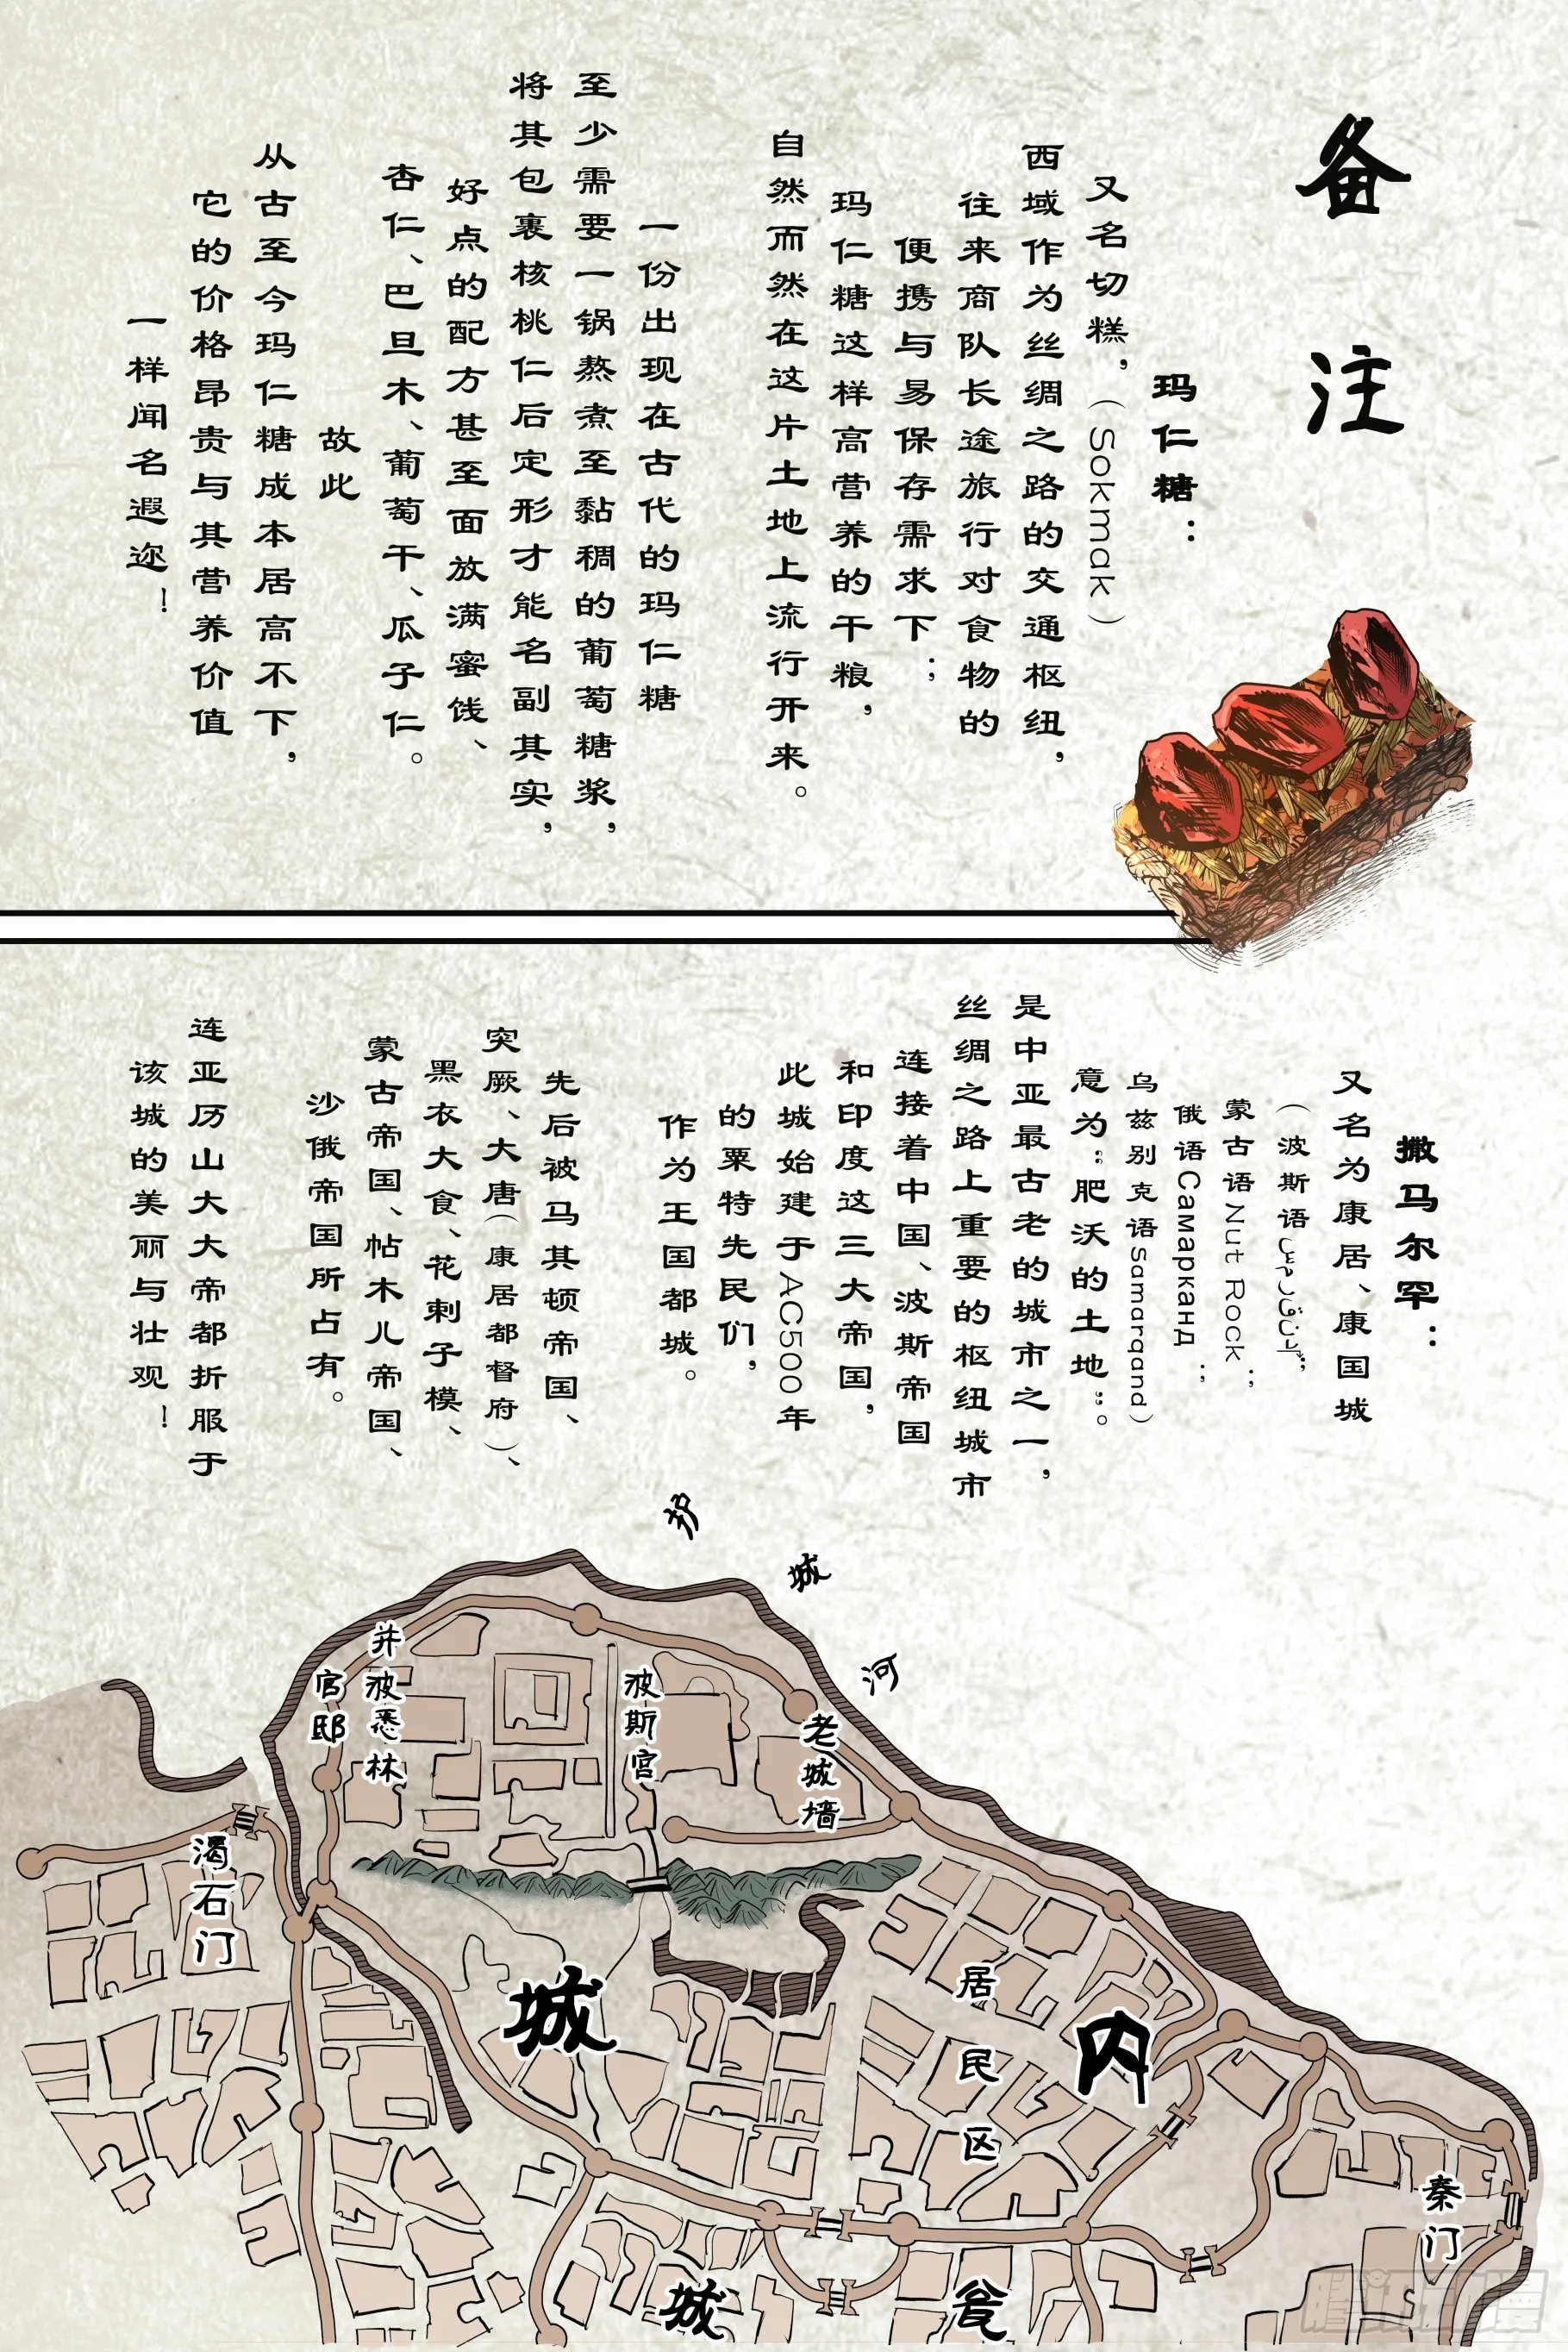 备注
玛仁糖：
又名切糕，（Sokmak）
西域作为丝绸之路的交通枢纽，
往来商队长途旅行对食物的
便携与易保存需求下；
玛仁糖这样高营养的干粮，
自然而然在这片土地上流行开来。
一份出现在古代的玛仁糖
至少需要一锅熬煮至黏稠的葡萄糖浆，
将其包裹核桃仁后定形才能名副其实，
好点的配方甚至面放满蜜饯、
杏仁、巴旦木、葡萄干、瓜子仁。
故此
从古至今玛仁糖成本居高不下，
它的价格昂贵与其营养价值
一样闻名遐迩！
撒马尔罕：
又名为康居、康国城
（波斯语
蒙古语Nut Rock；
俄语Самарканд；
乌兹别克语samarqand）
意为“肥沃的土地”。
是中亚最古老的城市之一，
丝绸之路上重要的枢纽城市
连接着中国、波斯帝国
和印度这三大帝国，
此城始建于AC500年
的粟特先民们，
作为王国都城。
先后被马其顿帝国、
突厥、大唐（康居都督府）、
黑衣大食、花剌子模、
蒙古帝国、帖木儿帝国、
沙俄帝国所占有。
连亚历山大大帝都折服于
该城的美丽与壮观！
护城河
老城墙
波斯宫
并波悉林
官邸
渴石门
内城
居民区
秦门
瓮城